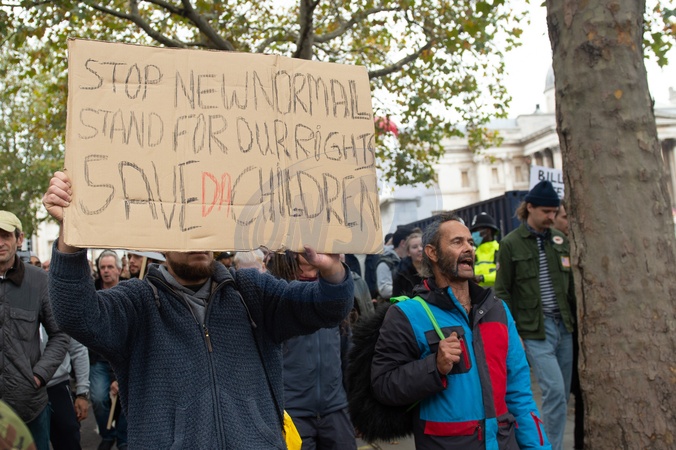 STOP NEW NORMAL
STAND FOR OUR RiGHTS
SAVE DA CHILDREN
BILL